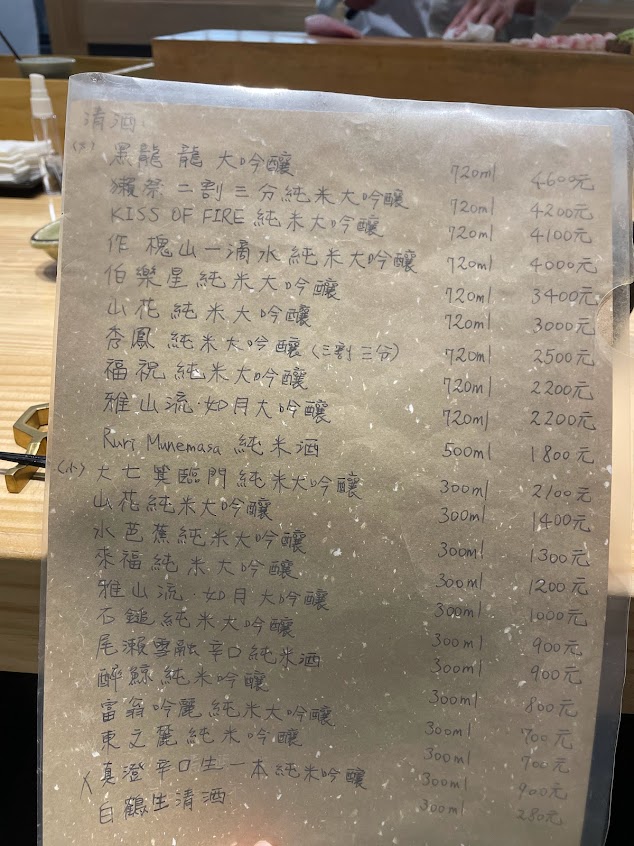 清酒:
(大) 黑龍 龍 大吟釀 720ml 4600元
獺祭二割三分純米大吟釀 720ml 4200元
KISS OF FIRE 純米大吟釀 720ml 4100元
作 槐山一滴水純米大吟釀 720ml 4000元
伯樂星純米大吟釀 720ml 3400元
山花純米大吟釀 720ml 3000元
秀鳳純米大吟釀(三割三分) 720ml 2500元
福祝純米大吟釀 720ml 2200元
雅山流·如月大吟釀 720ml 2200元
Ruri Munemasa 純米酒 500ml 1800元
(小) 大七箕臨門純米大吟釀 300ml 2100元
山花純米大吟釀 300ml 1400元
水芭蕉純米大吟釀 300ml 1300元
來福純米大吟釀 300ml 1200元
雅山流·如月大吟釀 300ml 1000元
石鎚純米大吟釀 300ml 900元
尾瀨雪融辛口純米酒 300ml 900元
醉鯨純米吟釀 300ml 800元
富翁吟麗純米大吟釀 300ml 700元
東之麓純米吟釀 300ml 700元
真澄辛口生一本純米吟釀 300ml 900元
白鶴生清酒 300ml 280元